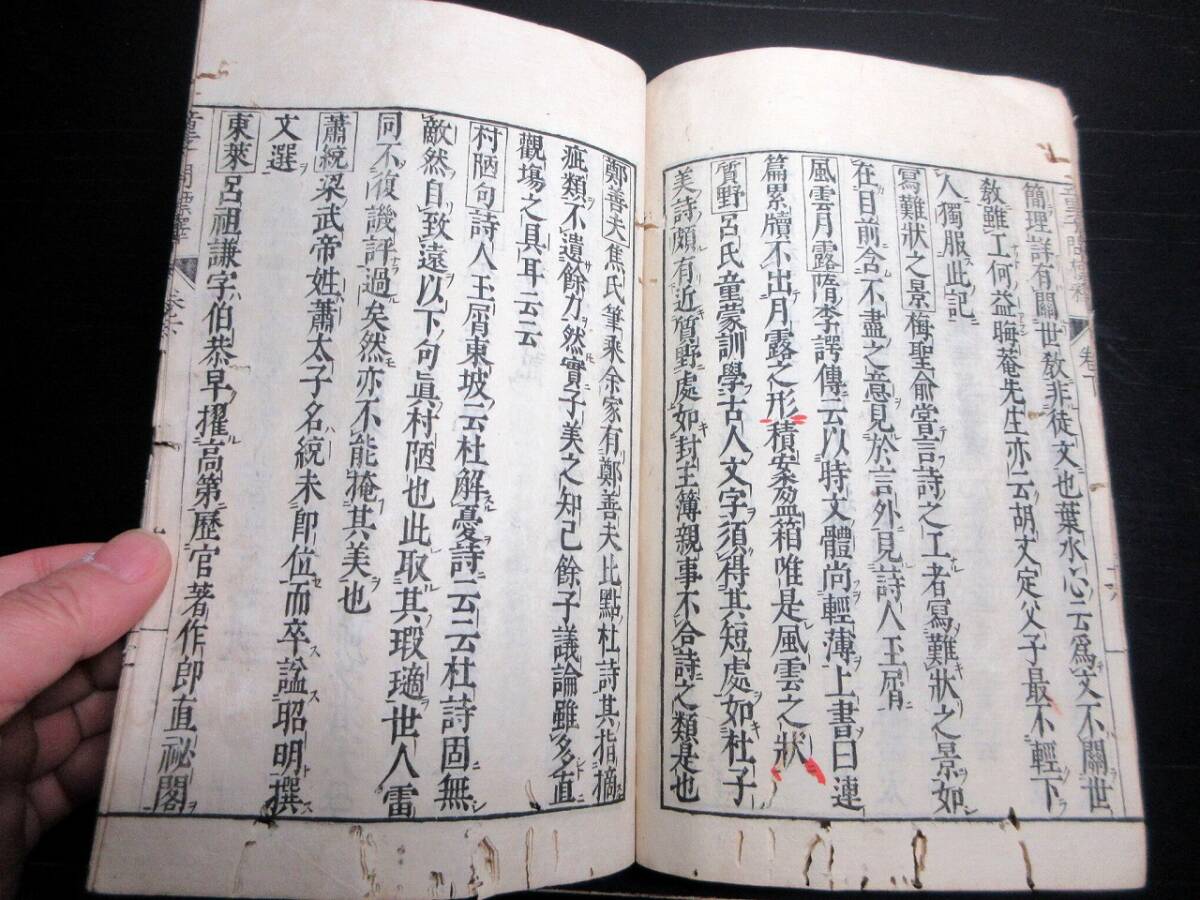 簡理詳有關世教非徒文也葉水心云爲文不關世
敎雖工何益晦菴先生亦云胡文定父子最不輕下
人獨服此記
寫難狀之景梅聖俞嘗言詩之工者寫難狀之景如
在目前含不盡之意見於言外見詩人玉屑
風雲月露隋李諤傳云以時文體尚輕薄上書曰連
篇累牘不出月露之形積案盈箱唯是風雲之狀
質野呂氏童蒙訓學古人文字須得其短處如杜子
美詩頗有近質野處如封主簿親事不合詩之類是也
鄭善夫焦氏筆乘余家有鄭善夫批點杜詩其指摘
疵類不遺餘力然實子美之知己餘子議論雖多直
觀塲之具耳云云
村陋句詩人玉屑東坡云杜解憂詩云云杜詩固無
敵然自致遠以下句眞村陋也此取其瑕謫世人雷
同不復譏評過矣然亦不能掩其美也
蕭統梁武帝姓蕭太子名統未即位而卒謚昭明撰
文選
東萊呂祖謙字伯恭早擢高第歷官著作郎直祕閣